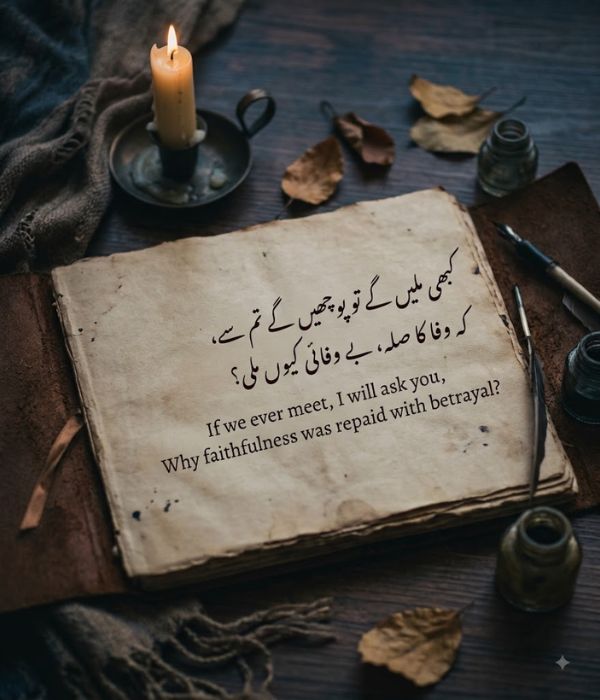 کبھی ملیں گے تو پوچھیں گے تم سے،
کہ وفا کا صلہ، بے وفائی کیوں ملی؟
If we ever meet, I will ask you,
Why faithfulness was repaid with betrayal?